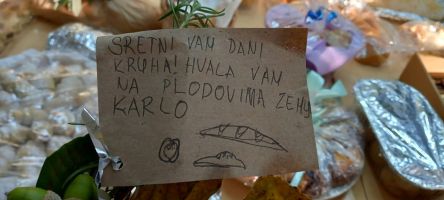 SRETNI VAM DANI
KRUHA! HVALA VAM
NA PLODOVIMA ZEMLJE
KARLO